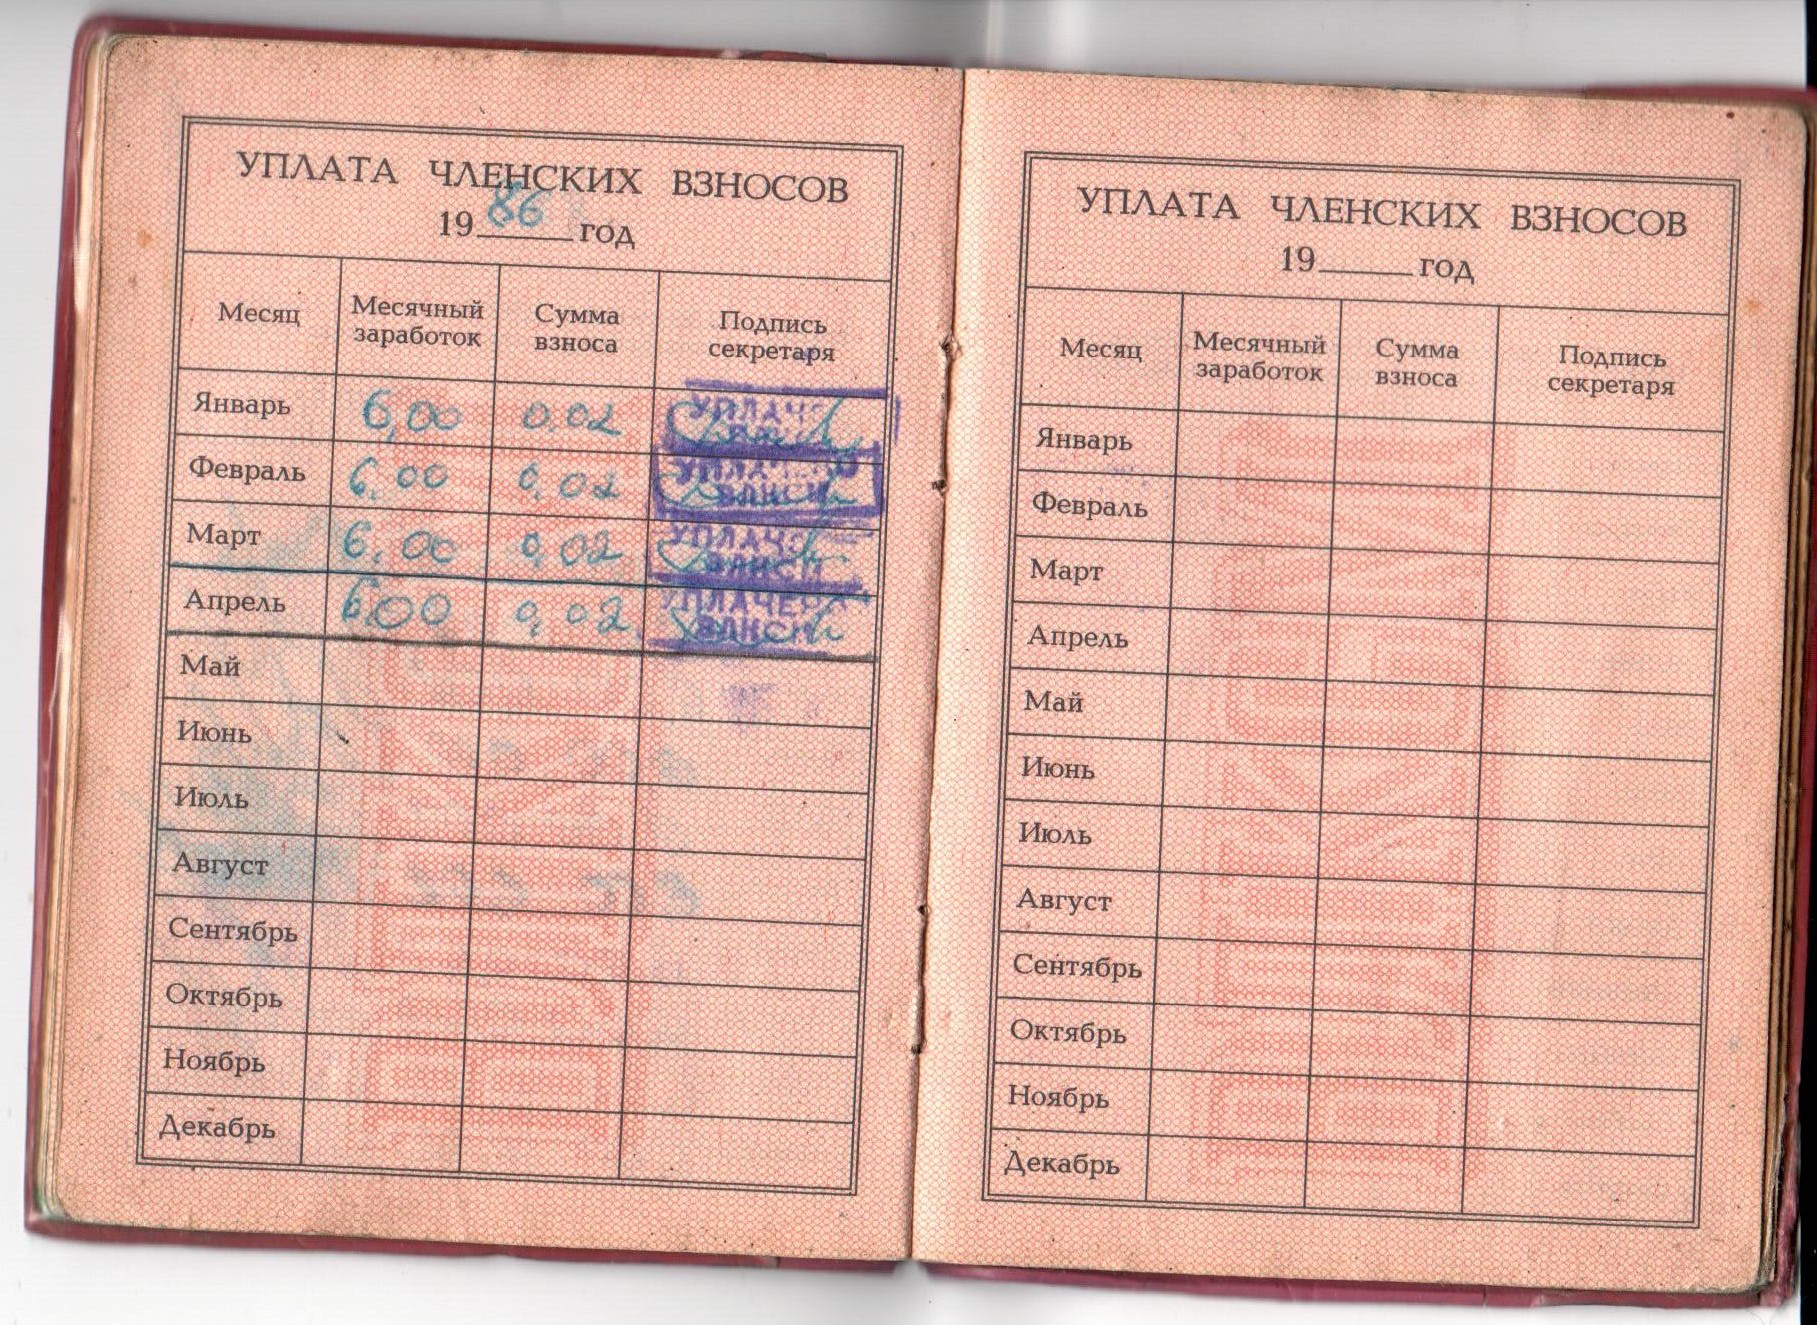 УПЛАТА ЧЛЕНСКИХ ВЗНОСОВ
1986 год
Месяц Месячный заработок Сумма взноса Подпись секретаря
Январь 6,00 0.02
Февраль 6.00 0,02 УПЛАЧЕНО ВЛКСМ
Март 6.00 0,02
Апрель 6.00 0,02 УПЛАЧЕНО ВЛКСМ
Май
Июнь
Июль
Август
Сентябрь
Октябрь
Ноябрь
Декабрь
УПЛАТА ЧЛЕНСКИХ ВЗНОСОВ
19 год
Месяц Месячный заработок Сумма взноса Подпись секретаря
Январь
Февраль
Март
Апрель
Май
Июнь
Июль
Август
Сентябрь
Октябрь
Ноябрь
Декабрь